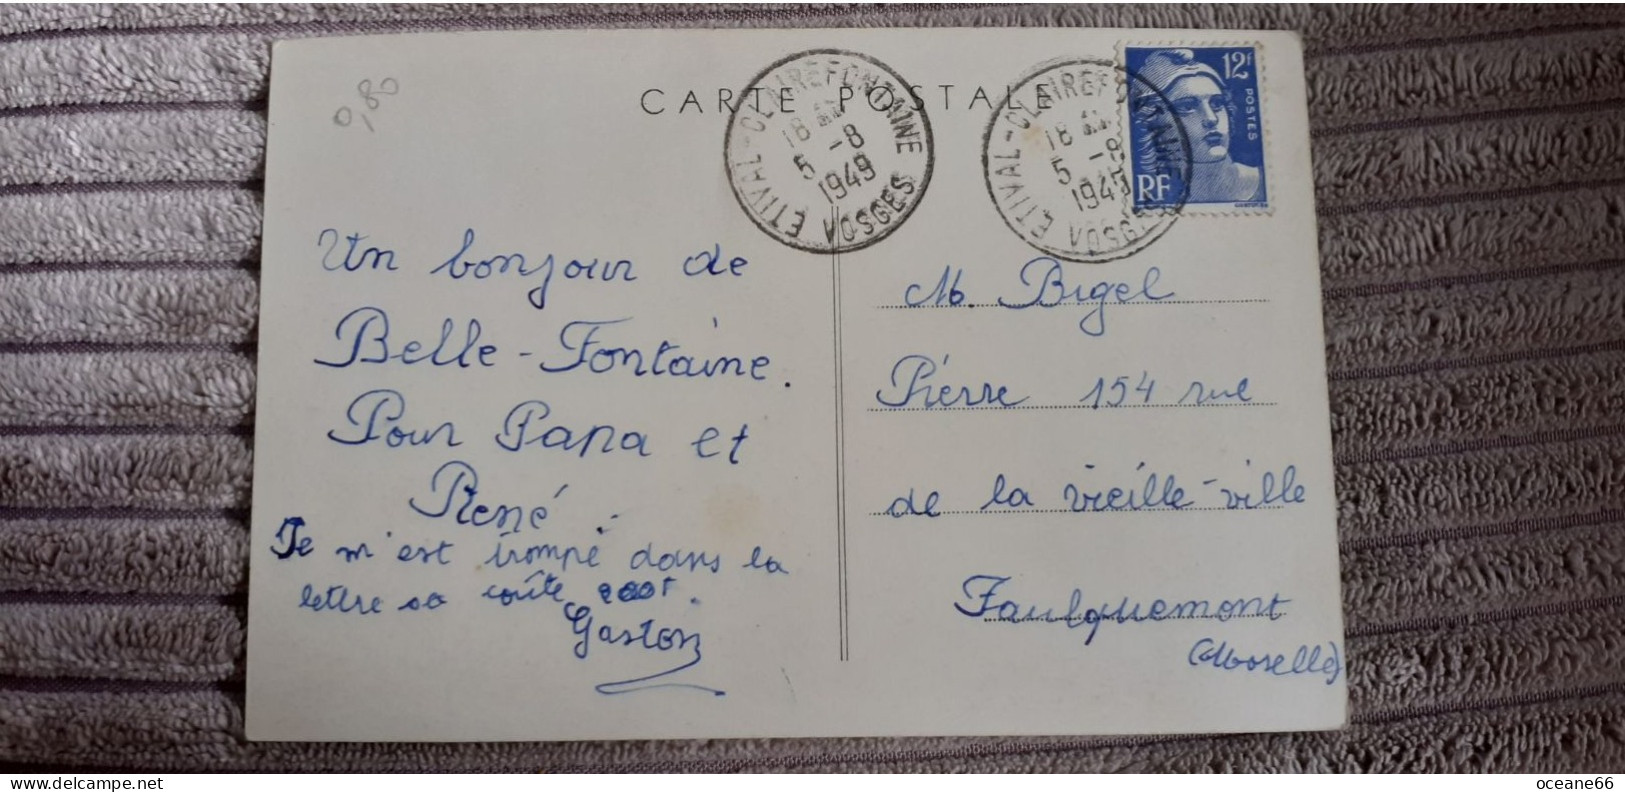 0,80
CARTE POSTALE
ETIVAL-CLAIREFONTAINE
18
5 -8
1949
VOSGES
ETIVAL-CLAIREFONTAINE
18
5 -8
1949
VOSGES
12F
POSTES
RF
Un bonjour de
Belle-Fontaine.
Pour Papa et
René.
Je m'est trompé dans la
lettre sa coûte
Gaston
M. Bigel
Pierre 154 rue
de la vieille-ville
Faulquemont
(Moselle)
oceane66